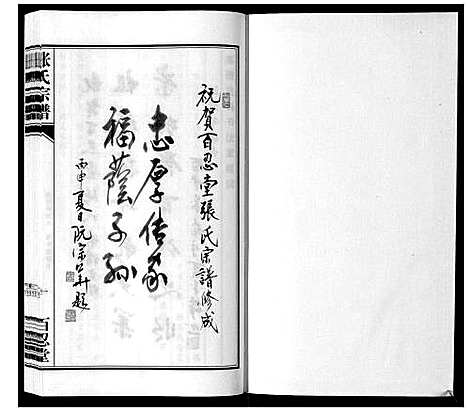 祝賀百忍堂張氏宗譜修成
忠厚传家
福蔭子孙
丙申夏日阮
題
张氏宗譜
百忍堂